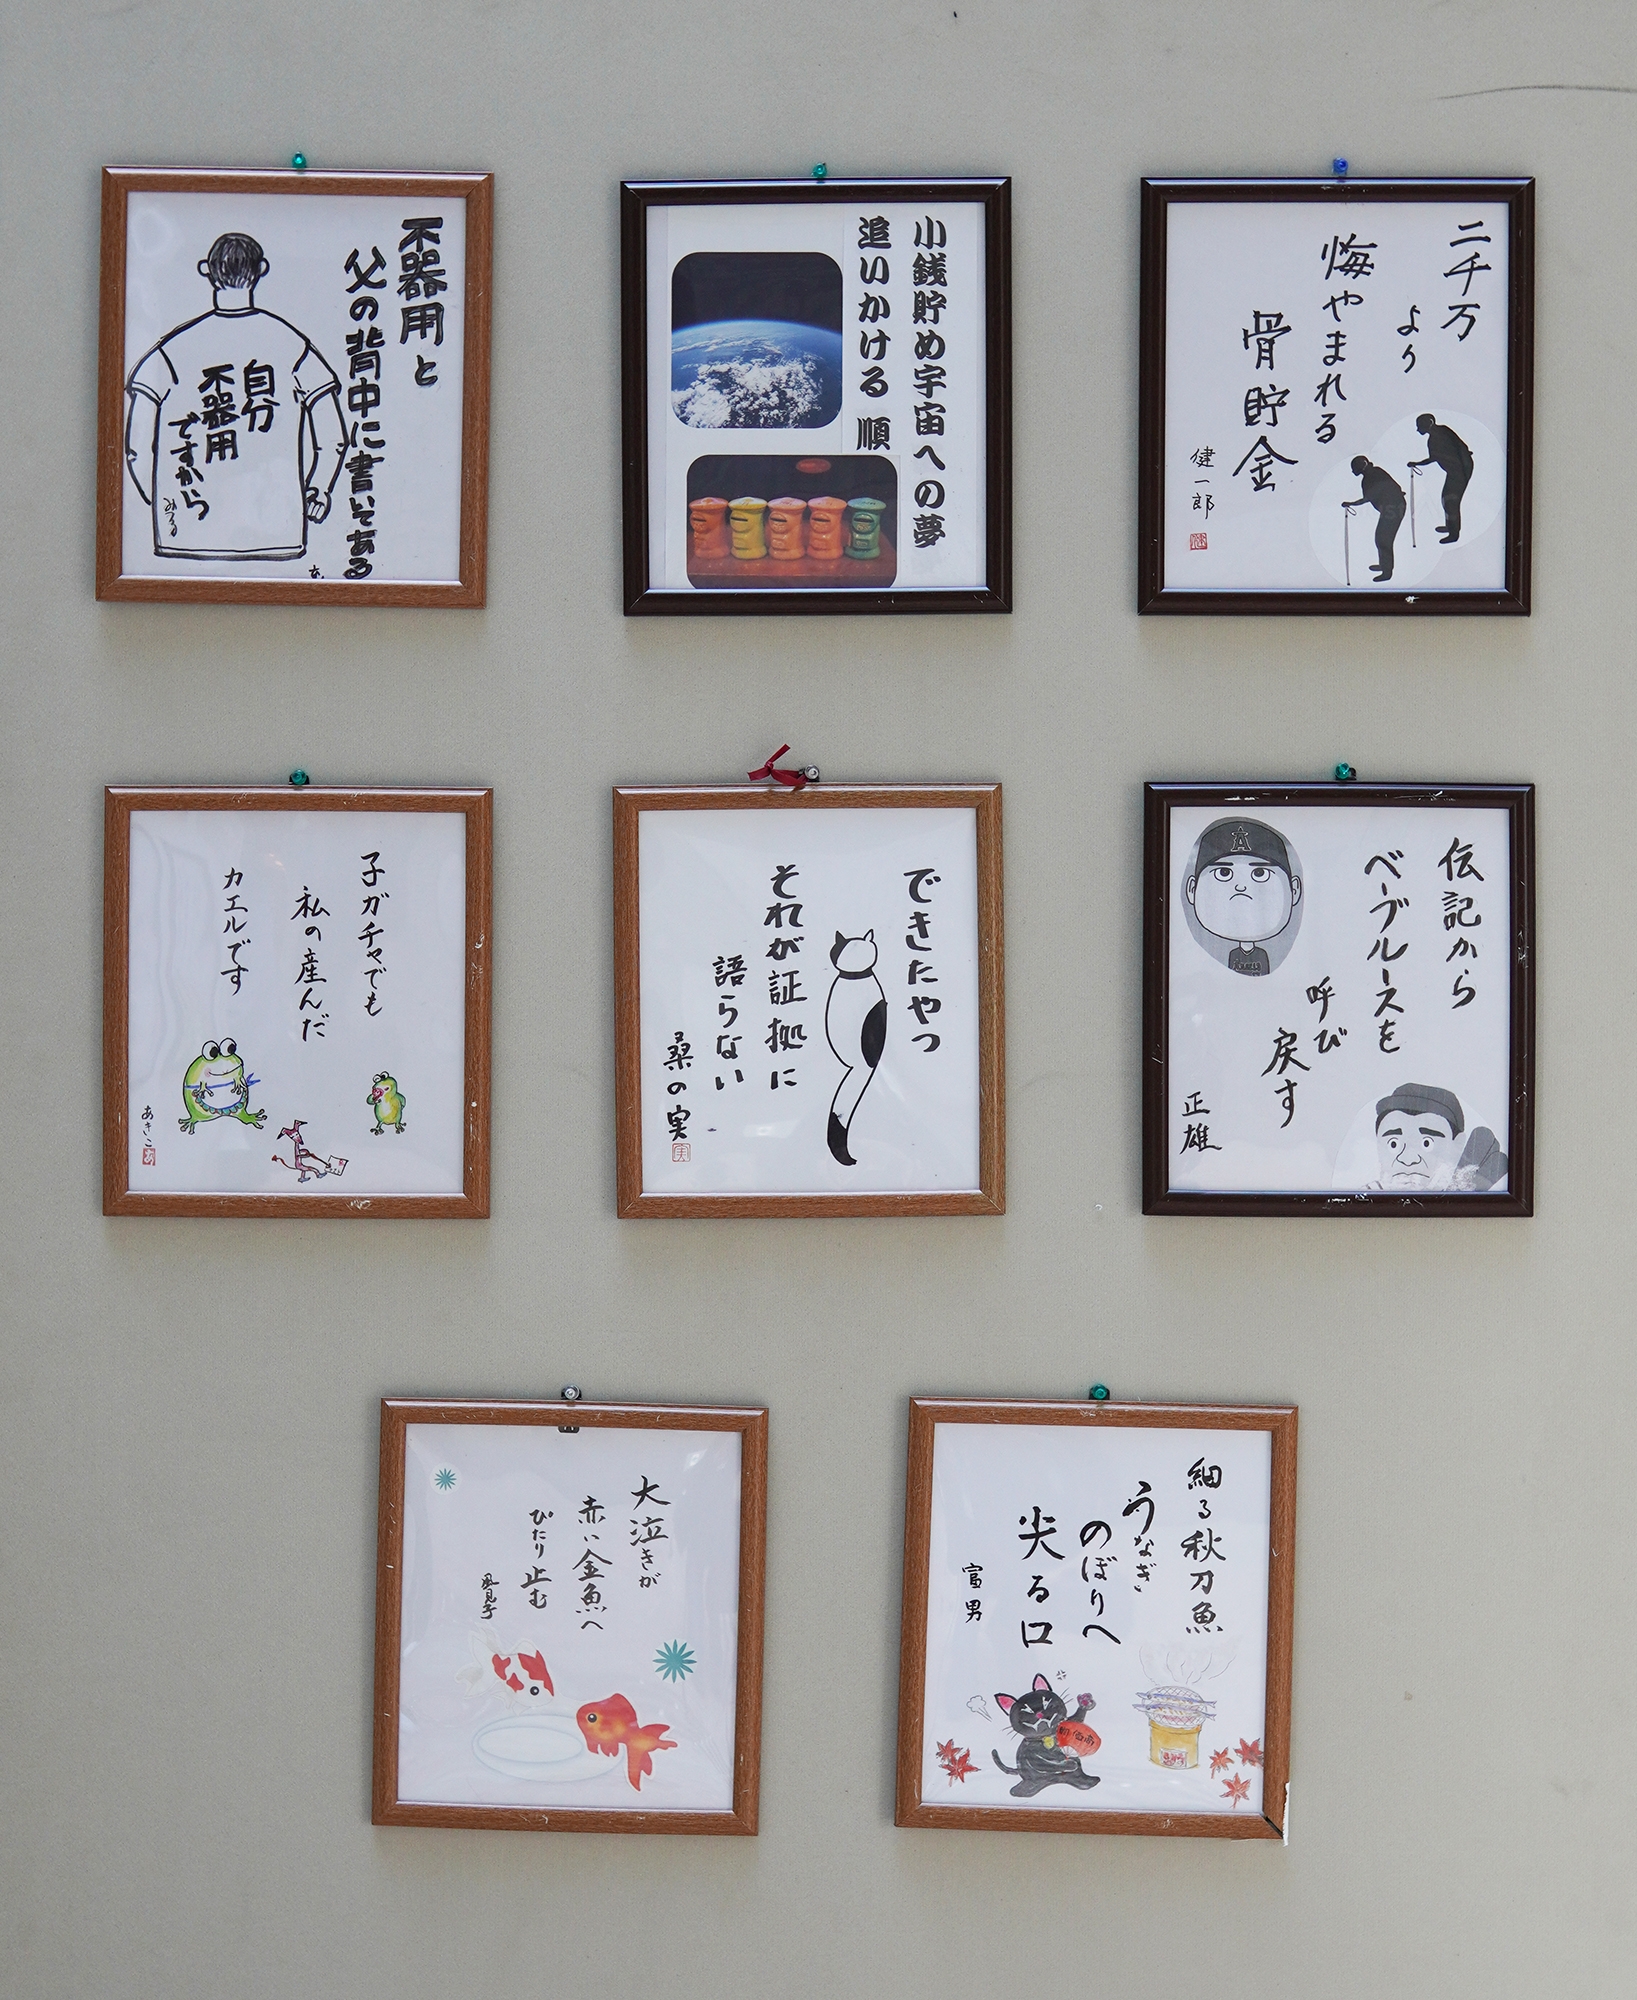 不器用と
父の背中に書いてある
自分
不器用
ですから
みつる
小銭貯め宇宙への夢
追いかける 順
二千万
より
悔やまれる
骨貯金
健一郎
子ガチャでも
私の産んだ
カエルです
あきこ
あ
できたやつ
それが証拠に
語らない
桑の実
実
伝記から
ベーブルースを
呼び
戻す
正雄
A
大泣きが
赤い金魚へ
ぴたり止む
風見子
細る秋刀魚
うなぎ
のぼりへ
尖る口
富男